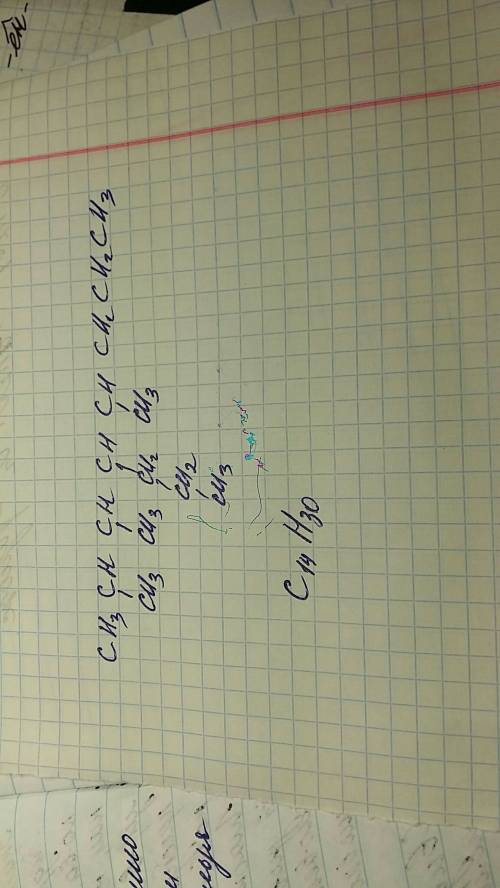 CH3 CH CH CH CH CH2 CH2 CH3
CH3 CH3 CH2 CH3
CH2
CH3
C14H30
-ен-